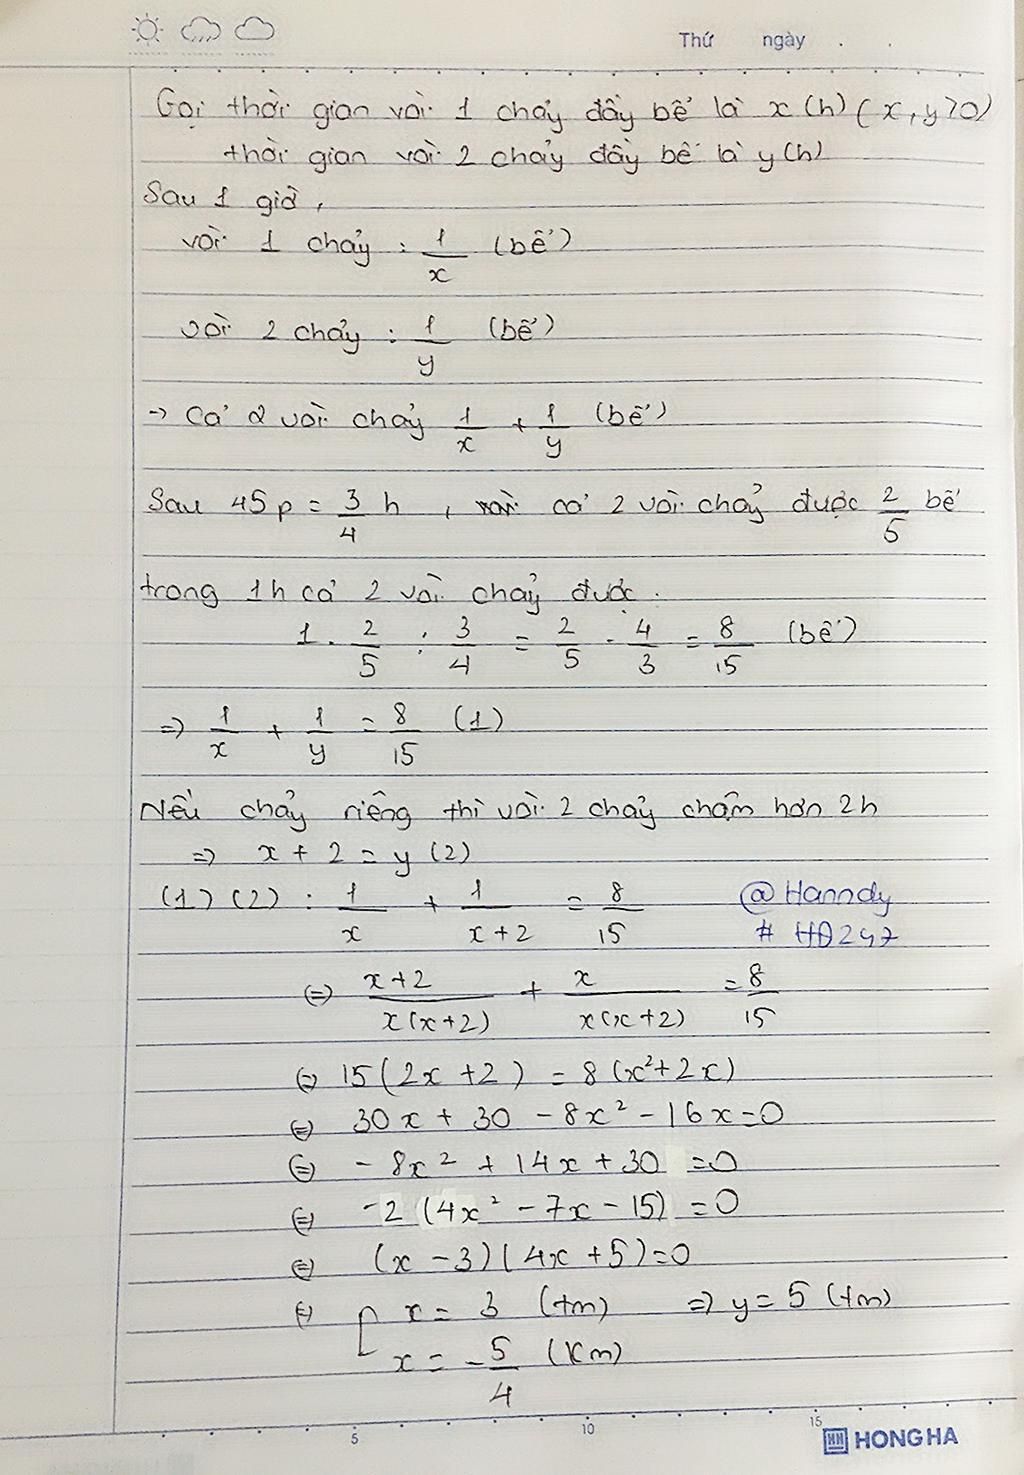 Thứ ngày
Gọi thời gian vòi 1 chảy đầy bể là x (h) (x, y > 0)
thời gian vòi 2 chảy đầy bể là y (h)
Sau 1 giờ,
vòi 1 chảy : 1/x (bể)
vòi 2 chảy : 1/y (bể)
→ Cả 2 vòi chảy 1/x + 1/y (bể)
Sau 45p = 3/4 h , cả 2 vòi chảy được 2/5 bể
trong 1h cả 2 vòi chảy được.
1 . 2/5 : 3/4 = 2/5 . 4/3 = 8/15 (bể)
=> 1/x + 1/y = 8/15 (1)
Nếu chảy riêng thì vòi 2 chảy chậm hơn 2h
=> x + 2 = y (2)
(1) (2) : 1/x + 1/(x+2) = 8/15
@Hanndy
# HD247
(=) (x+2)/(x(x+2)) + x/(x(x+2)) = 8/15
(=) 15(2x + 2) = 8(x² + 2x)
(=) 30x + 30 - 8x² - 16x = 0
(=) - 8x² + 14x + 30 = 0
(=) -2 (4x² - 7x - 15) = 0
(=) (x - 3)(4x + 5) = 0
(=) [ x = 3 (tm) => y = 5 (tm)
x = -5/4 (Ktm)
5 10 15
HH HONG HA